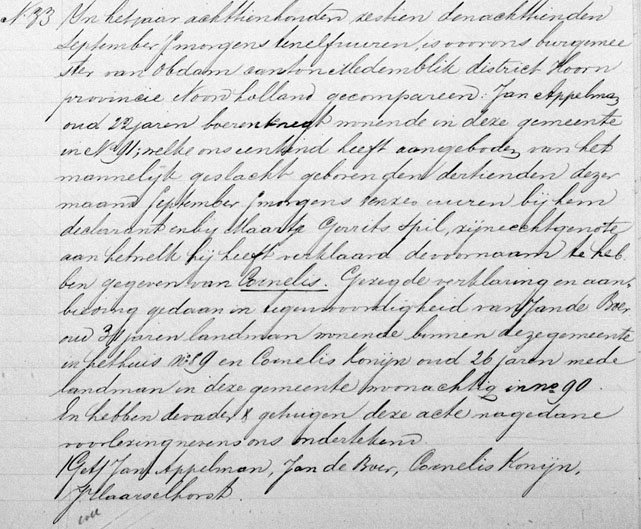 N. 33 In het jaar achttienhonderd zestien den achttienden
September 's morgens ten elf uuren, is voor ons burgemee
ster van Obdam canton Medemblik district Hoorn
provincie Noord Holland gecompareerd: Jan Appelman
oud 22 jaren boerenknegt wonende in deze gemeente
in No 91; welke ons een kind heeft aangeboden van het
mannelijk geslacht geboren den dertienden dezer
maand September 's morgens ten zes uuren bij hem
declarant en bij Maartje Gerrits Spil, zijne echtgenote
aan hetwelk hij heeft verklaard de voornaam te heb
ben gegeven van Cornelis. Gezegde verklaring en aan
bieding gedaan in tegenwoordigheid van Jan de Boer
oud 31 jaren landman wonende binnen deze gemeente
in het huis No 89 en Cornelis Konijn oud 26 jaren mede
landman in deze gemeente woonachtig in no 90.
En hebben de vader & getuigen deze acte na gedane
voorlezing nevens ons ondertekend.
(Get) Jan Appelman, Jan de Boer, Cornelis Konijn,
J. Haarselhorst.